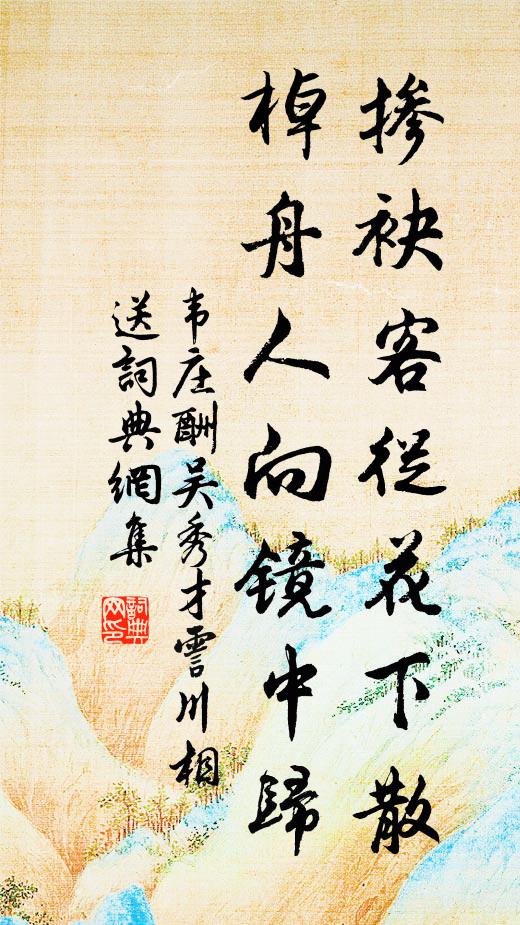 掺袂客從花下散
棹舟人向镜中歸
韦庄酬吴秀才霅川相
送詞典網集
詞典
网印